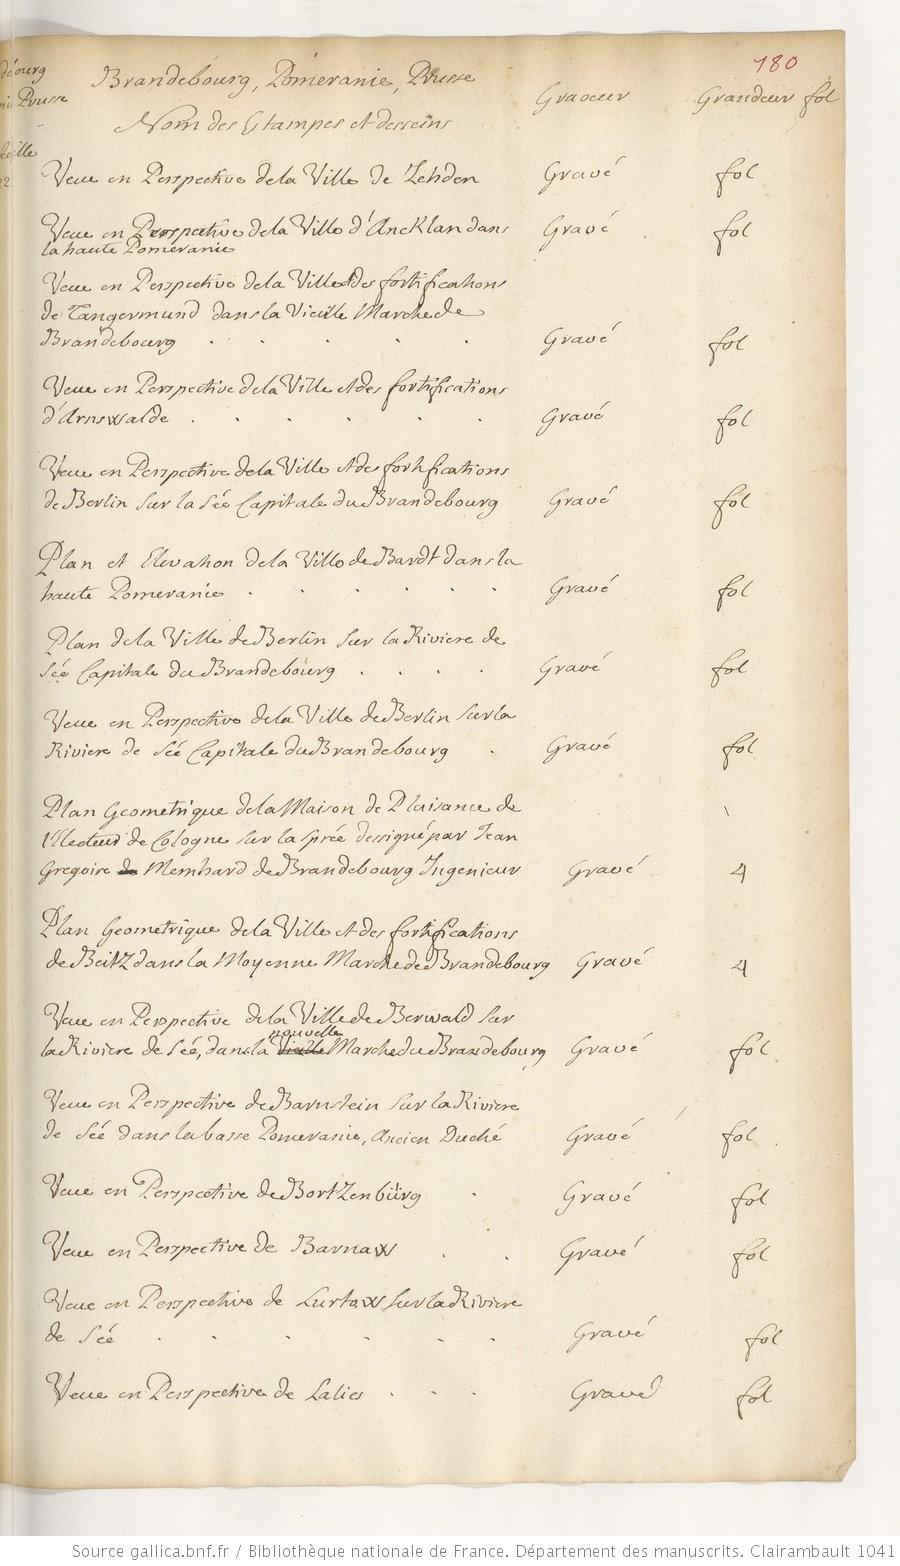 180
Brandebourg, Pomeranie, Prusse
Graveur Grandeur fol
Nom des Estampes et desseins
Veue en Perspective de la Ville de Zehden Gravé fol
Veue en Perspective de la Ville d'Ancklan dans Gravé fol
la haute Pomeranie
Veue en Perspective de la Ville et des fortifications
de Tangermund dans la Vieille Marche de
Brandebourg . . . . . Gravé fol
Veue en Perspective de la Ville et des fortifications
d'Arnswalde . . . . . Gravé fol
Veue en Perspective de la Ville et des fortifications
de Berlin sur la Séé Capitale du Brandebourg Gravé fol
Plan et Elevation de la Ville de Bardt dans la
haute Pomeranie . . . . . Gravé fol
Plan de la Ville de Berlin sur la Riviere de
Séé Capitale du Brandebourg . . . . Gravé fol
Veue en Perspective de la Ville de Berlin sur la
Riviere de Séé Capitale du Brandebourg . Gravé fol
Plan Geometrique de la Maison de Plaisance de
l'Electeur de Cologne sur la Sprée dessigné par Jean
Gregoire de Memhard de Brandebourg Ingenieur Gravé 4
Plan Geometrique de la Ville et des fortifications
de Beitz dans la Moyenne Marche de Brandebourg Gravé 4
Veue en Perspective de la Ville de Berwald sur
nouvelle
la Riviere de Séé, dans la Vieille Marche du Brandebourg Gravé fol
Veue en Perspective de Barnstein sur la Riviere
de Séé dans la basse Pomeranie, Ancien Duché Gravé fol
Veue en Perspective de Bortzenbürg . Gravé fol
Veue en Perspective de Barnaw . . Gravé fol
Veue en Perspective de Lurtaw sur la Riviere
de Séé . . . . . . Gravé fol
Veue en Perspective de Lalies . . . Gravé fol
Source gallica.bnf.fr / Bibliothèque nationale de France. Département des manuscrits. Clairambault 1041